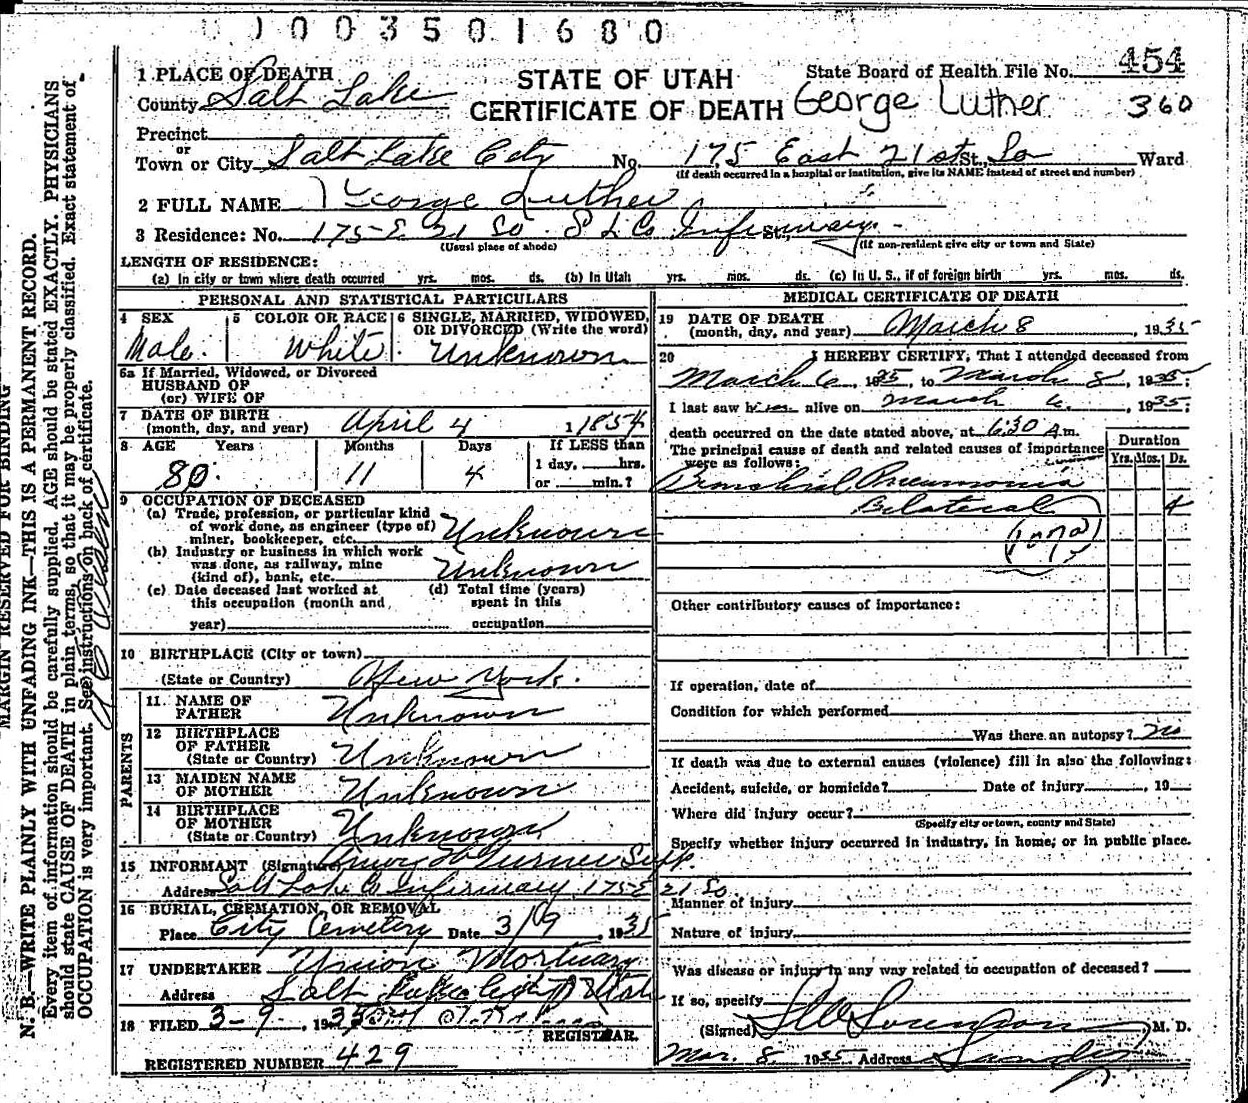 1003501680
454
1 PLACE OF DEATH STATE OF UTAH State Board of Health File No.
County Salt Lake CERTIFICATE OF DEATH George Luther 360
Precinct
or
Town or City Salt Lake City No. 175 East 21st St., So Ward
(If death occurred in a hospital or institution, give its NAME instead of street and number)
2 FULL NAME George Luther
3 Residence: No. 175 E 21 So. S L Co Infirmary St.,
(Usual place of abode) (If non-resident give city or town and State)
LENGTH OF RESIDENCE:
(a) In city or town where death occurred yrs. mos. ds. (b) In Utah yrs. mos. ds. (c) In U. S., if of foreign birth yrs. mos. ds.
PERSONAL AND STATISTICAL PARTICULARS
4 SEX 5 COLOR OR RACE 6 SINGLE, MARRIED, WIDOWED, OR DIVORCED (Write the word)
Male. White. Unknown
6a If Married, Widowed, or Divorced
HUSBAND OF
(or) WIFE OF
7 DATE OF BIRTH
(month, day, and year) April 4 1854
8 AGE Years Months Days If LESS than
80. 11 4 1 day, hrs.
or min.?
9 OCCUPATION OF DECEASED
(a) Trade, profession, or particular kind
of work done, as engineer (type of)
miner, bookkeeper, etc. Unknown
(b) Industry or business in which work
was done, as railway, mine
(kind of), bank, etc. Unknown
(c) Date deceased last worked at (d) Total time (years)
this occupation (month and spent in this
year) occupation
10 BIRTHPLACE (City or town)
(State or Country) New York.
PARENTS
11. NAME OF
FATHER Unknown
12 BIRTHPLACE
OF FATHER
(State or Country) Unknown
13 MAIDEN NAME
OF MOTHER Unknown
14 BIRTHPLACE
OF MOTHER
(State or Country) Unknown
15 INFORMANT (Signature) Supt.
Address Salt Lake Co Infirmary 175-E 21 So.
16 BURIAL, CREMATION, OR REMOVAL
Place City Cemetery Date 3/9, 1935
17 UNDERTAKER Union Mortuary
Address Salt Lake City Utah
18 FILED 3-9, 1935
REGISTRAR.
REGISTERED NUMBER 429
MEDICAL CERTIFICATE OF DEATH
19 DATE OF DEATH
(month, day, and year) March 8, 1935
20 I HEREBY CERTIFY, That I attended deceased from
March 6, 1935, to March 8, 1935;
I last saw him alive on March 6, 1935;
death occurred on the date stated above, at 6:30 A.m.
The principal cause of death and related causes of importance
were as follows:
Duration
Yrs. Mos. Ds.
Bronchial Pneumonia
Bilateral 4
(107a)
Other contributory causes of importance:
If operation, date of
Condition for which performed
Was there an autopsy? no
If death was due to external causes (violence) fill in also the following:
Accident, suicide, or homicide? Date of injury, 19
Where did injury occur?
(Specify city or town, county and State)
Specify whether injury occurred in industry, in home, or in public place.
Manner of injury
Nature of injury
Was disease or injury in any way related to occupation of deceased?
If so, specify
(Signed) Sorenson, M. D.
Mar. 8 1935 Address Sandy
MARGIN RESERVED FOR BINDING
N. B.—WRITE PLAINLY WITH UNFADING INK—THIS IS A PERMANENT RECORD.
Every item of information should be carefully supplied. AGE should be stated EXACTLY. PHYSICIANS
should state CAUSE OF DEATH in plain terms, so that it may be properly classified. Exact statement of
OCCUPATION is very important. See instructions on back of certificate.